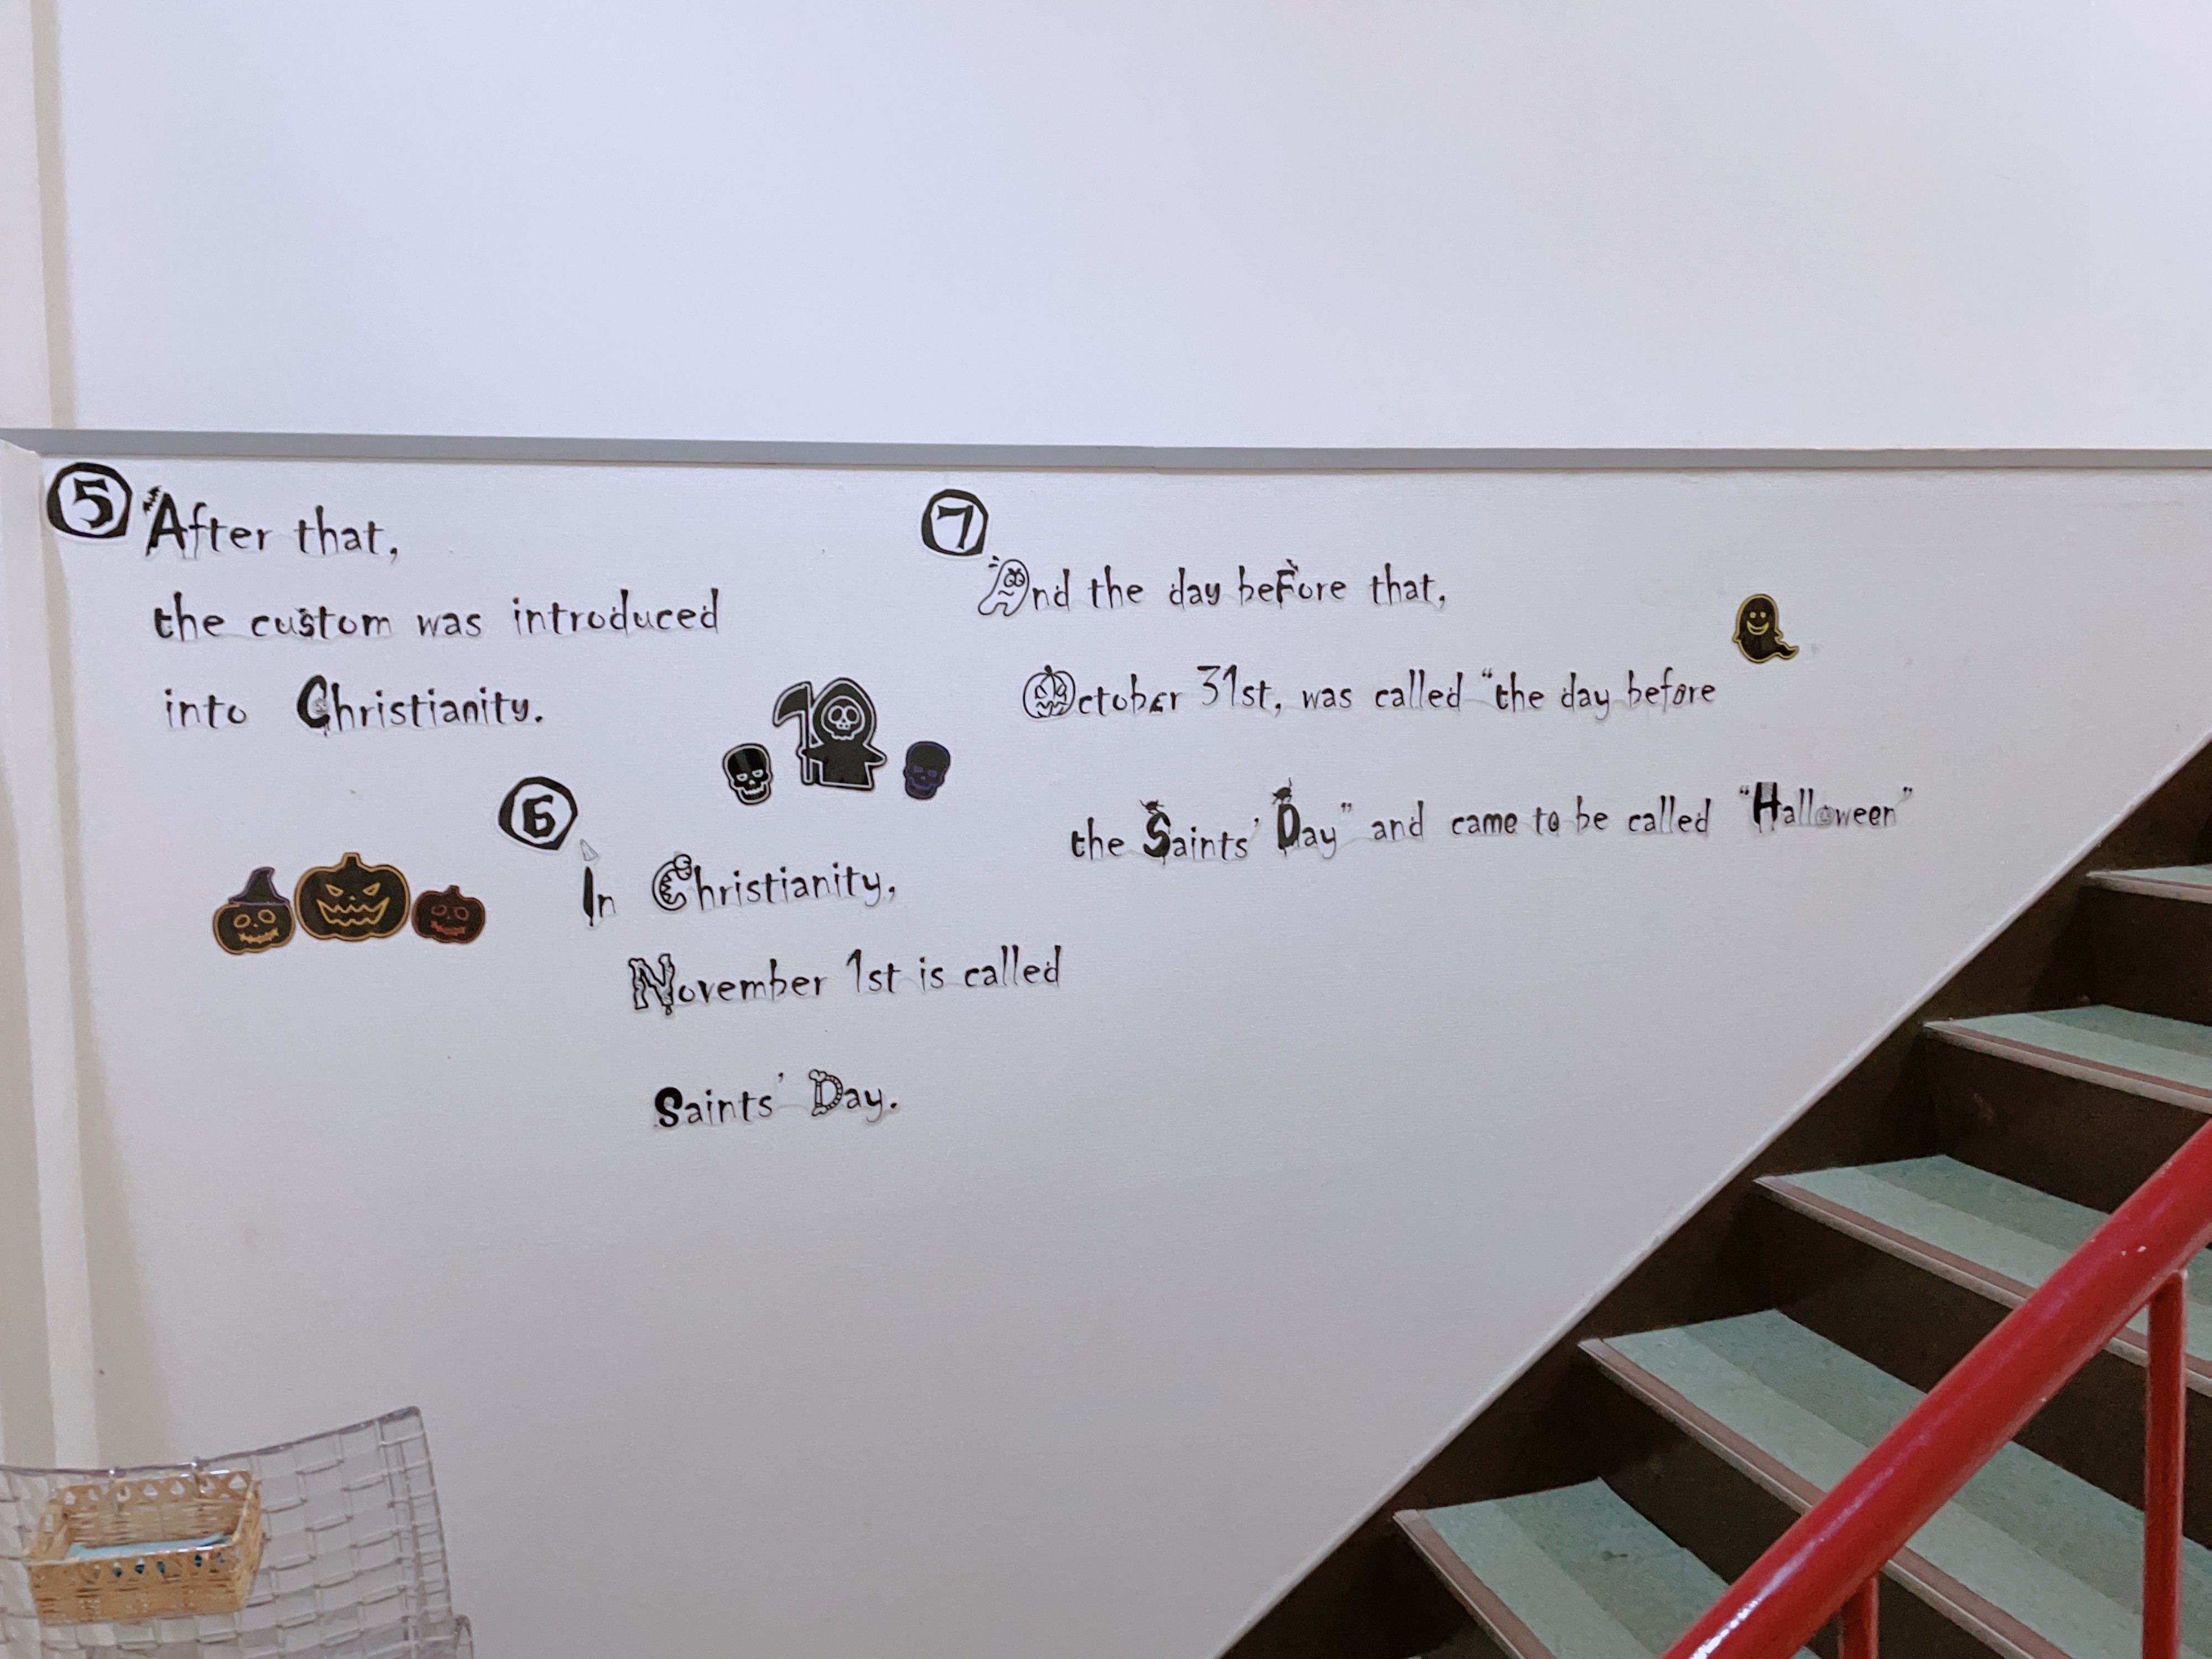 5 After that,
the custom was introduced
into Christianity.
6
In Christianity,
November 1st is called
Saints' Day.
7
And the day beFore that,
October 31st, was called "the day before
the Saints' Day" and came to be called "Halloween"